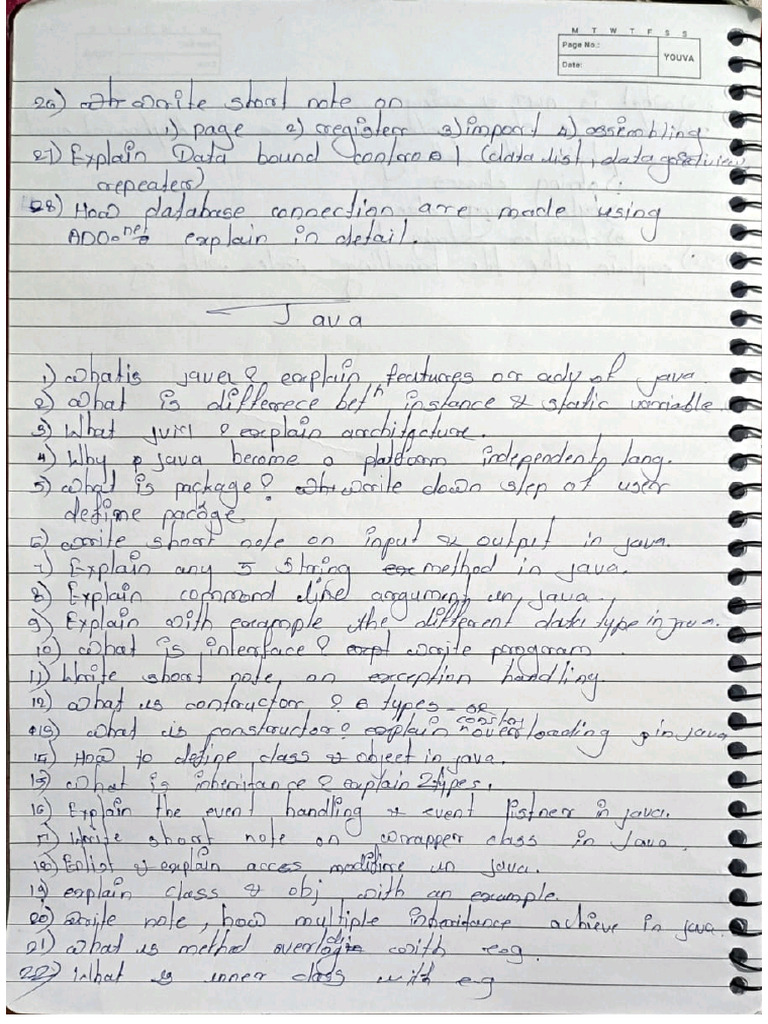 M T W T F S S
Page No.:
Date:
YOUVA
26) write short note on
1) page 2) register 3) import 4) assembling
27) Explain Data bound control (data list, data gridview
repeater)
28) How database connection are made using
ADO.net explain in detail.
Java
1) whatis java? explain features or adv of java.
2) What is differece betn instance & static variable.
3) What jvm ? explain architecture.
4) Why java become a platform independent lang.
5) what is package? write down step of user
define pacage
6) write short note on input & output in java.
7) Explain any 5 string method in java.
8) Explain command line argument in java.
9) Explain with example the different data type in java.
10) what is interface? write program
11) Write short note, on exception handling.
12) what is contructor, ? types - or
13) what is constructor? explain overloading in java
14) How to define class & object in java.
15) what is inheritance? explain 2 types.
16) Explain the event handling & event listner in java.
17) Write short note on wrapper class in Java.
18) Enlist & explain acces modifire in java.
19) explain class & obj with an example.
20) write note, how multiple inheritance achieve in java.
21) what is method with e.g.
22) What is inner class with e.g